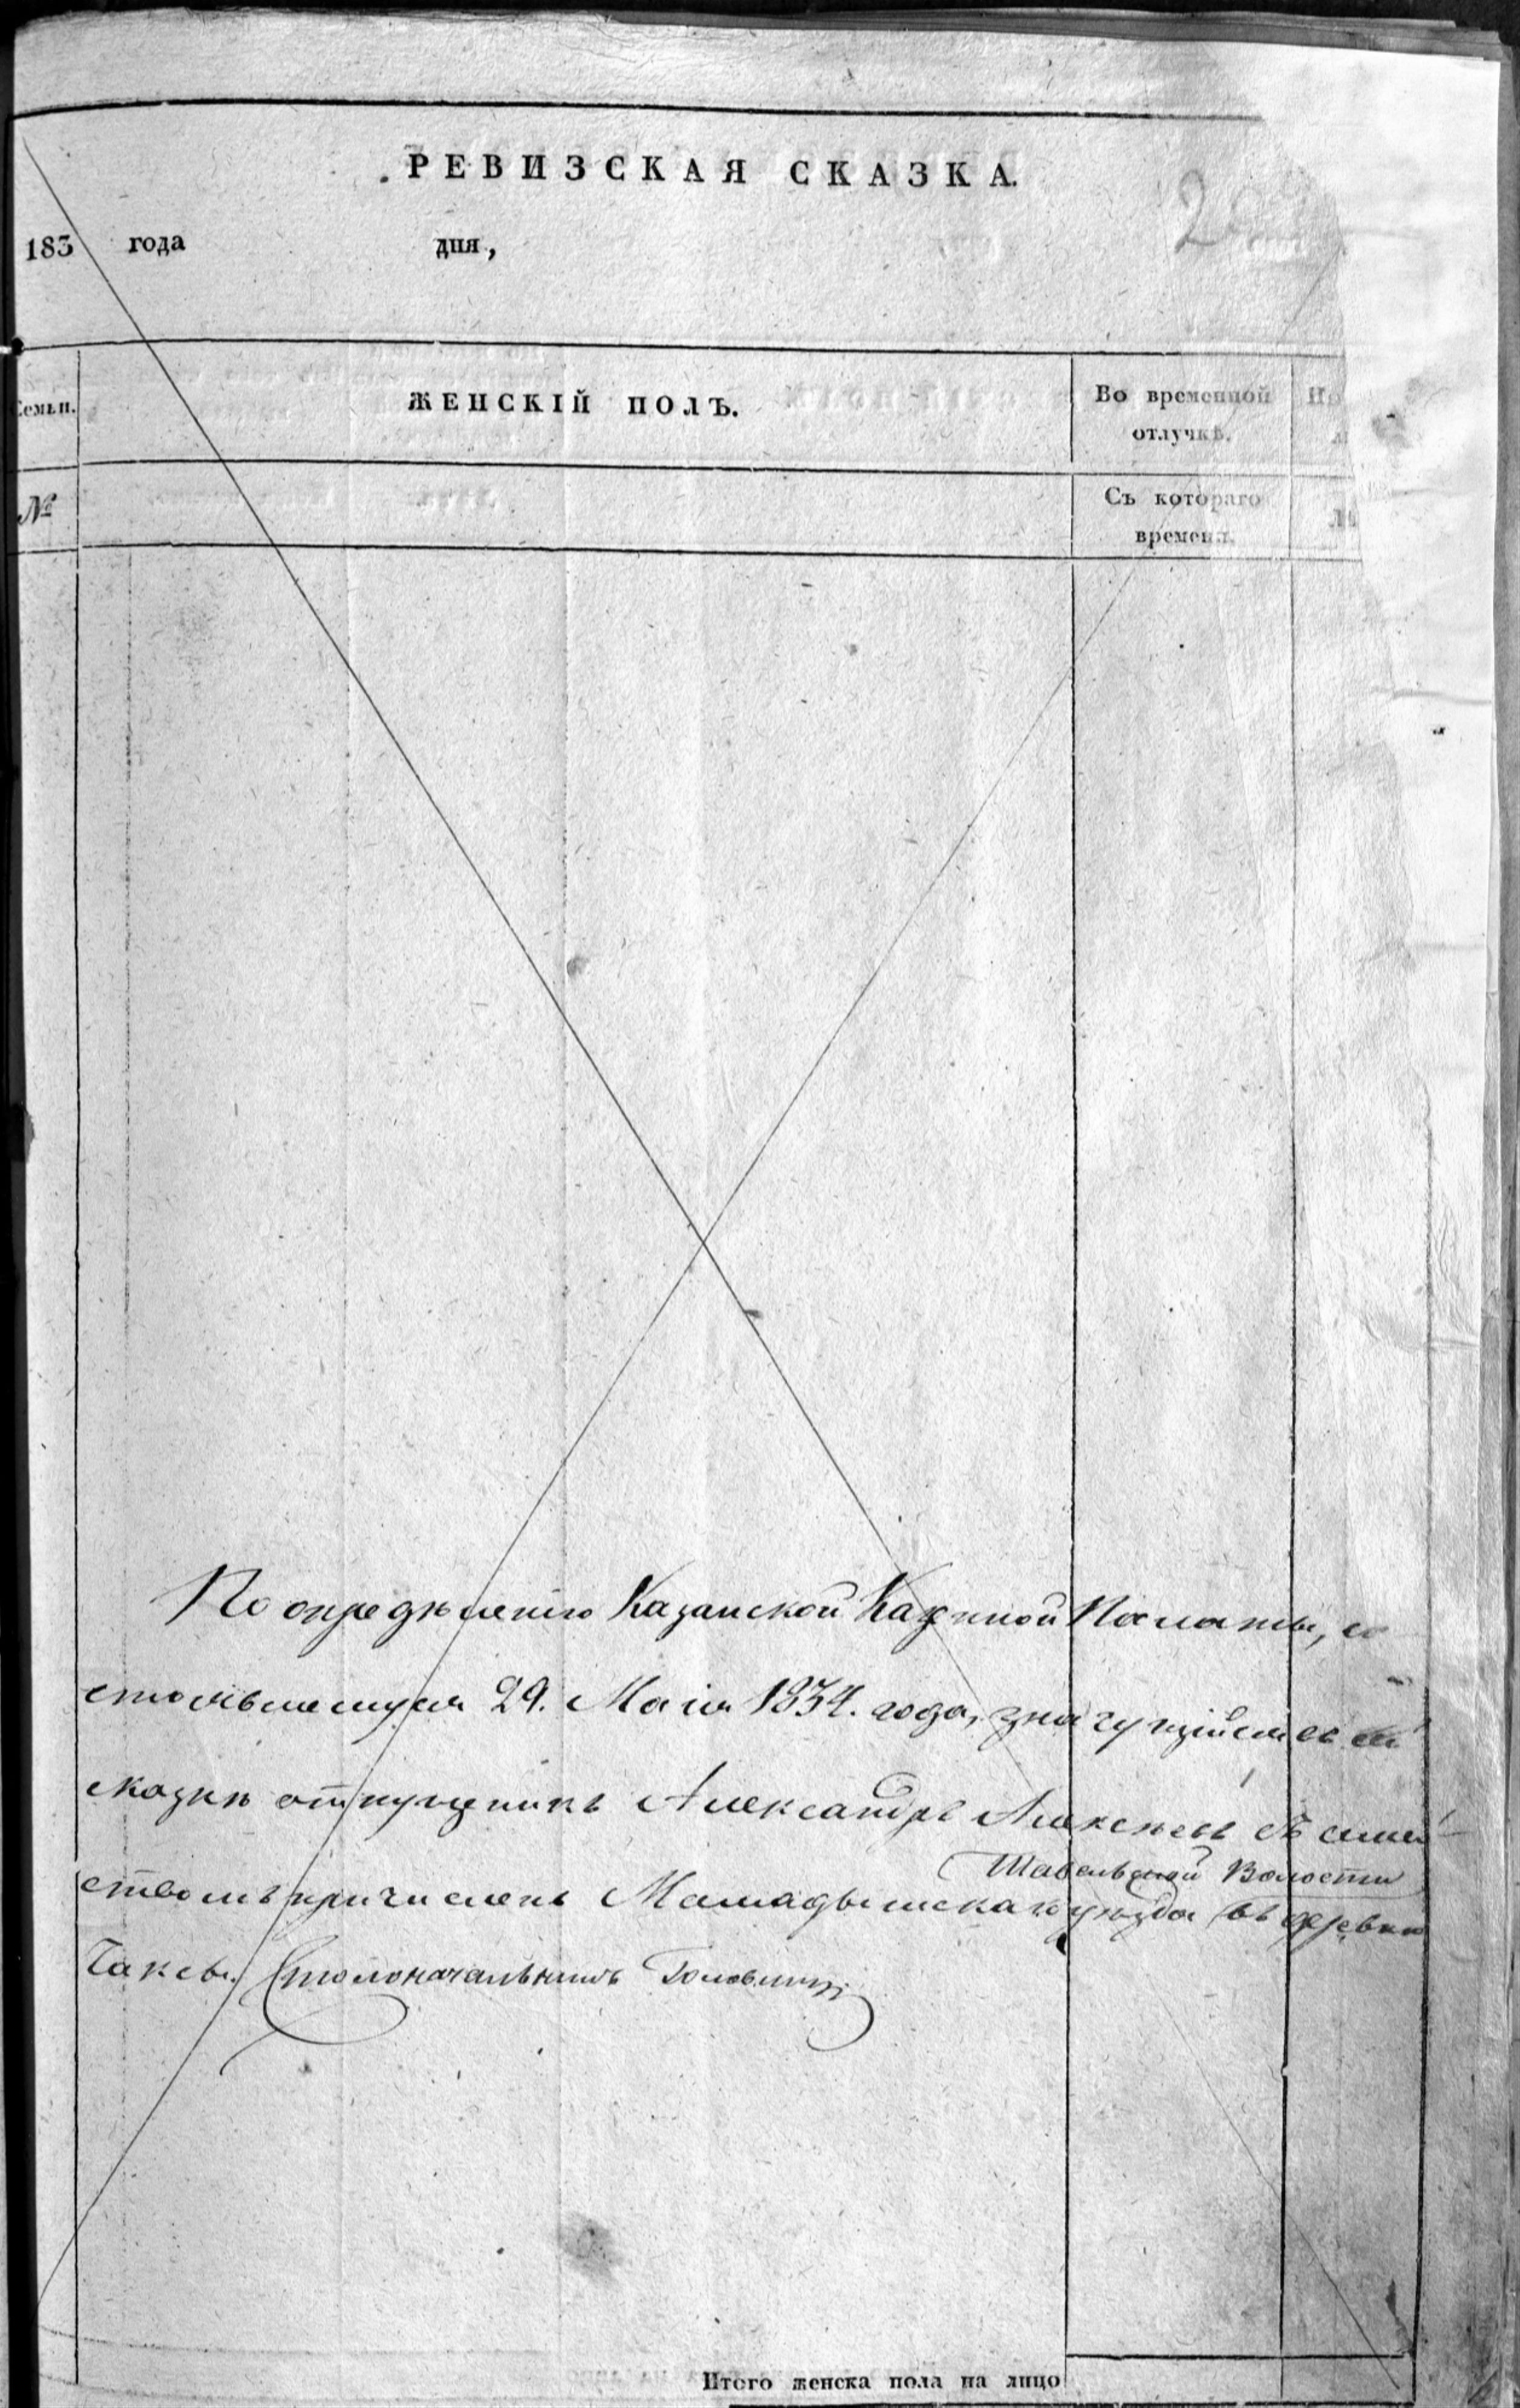 РЕВИЗСКАЯ СКАЗКА.
183 года дня,
Семьи. ЖЕНСКІЙ ПОЛЪ. Во временной
отлучкѣ.
№ Съ котораго
времени.
По опредѣленію Казанской Казенной Палаты, со
стоявшемуся 29. Маія 1834. года, значущійся въ сей
сказкѣ отпущеникъ Александръ Алексѣевъ съ семей
Шабельской Волости
ствомъ причисленъ Мамадышскаго уѣзда въ деревню
Чаксы. Столоначальникъ
Итого женска пола на лицо